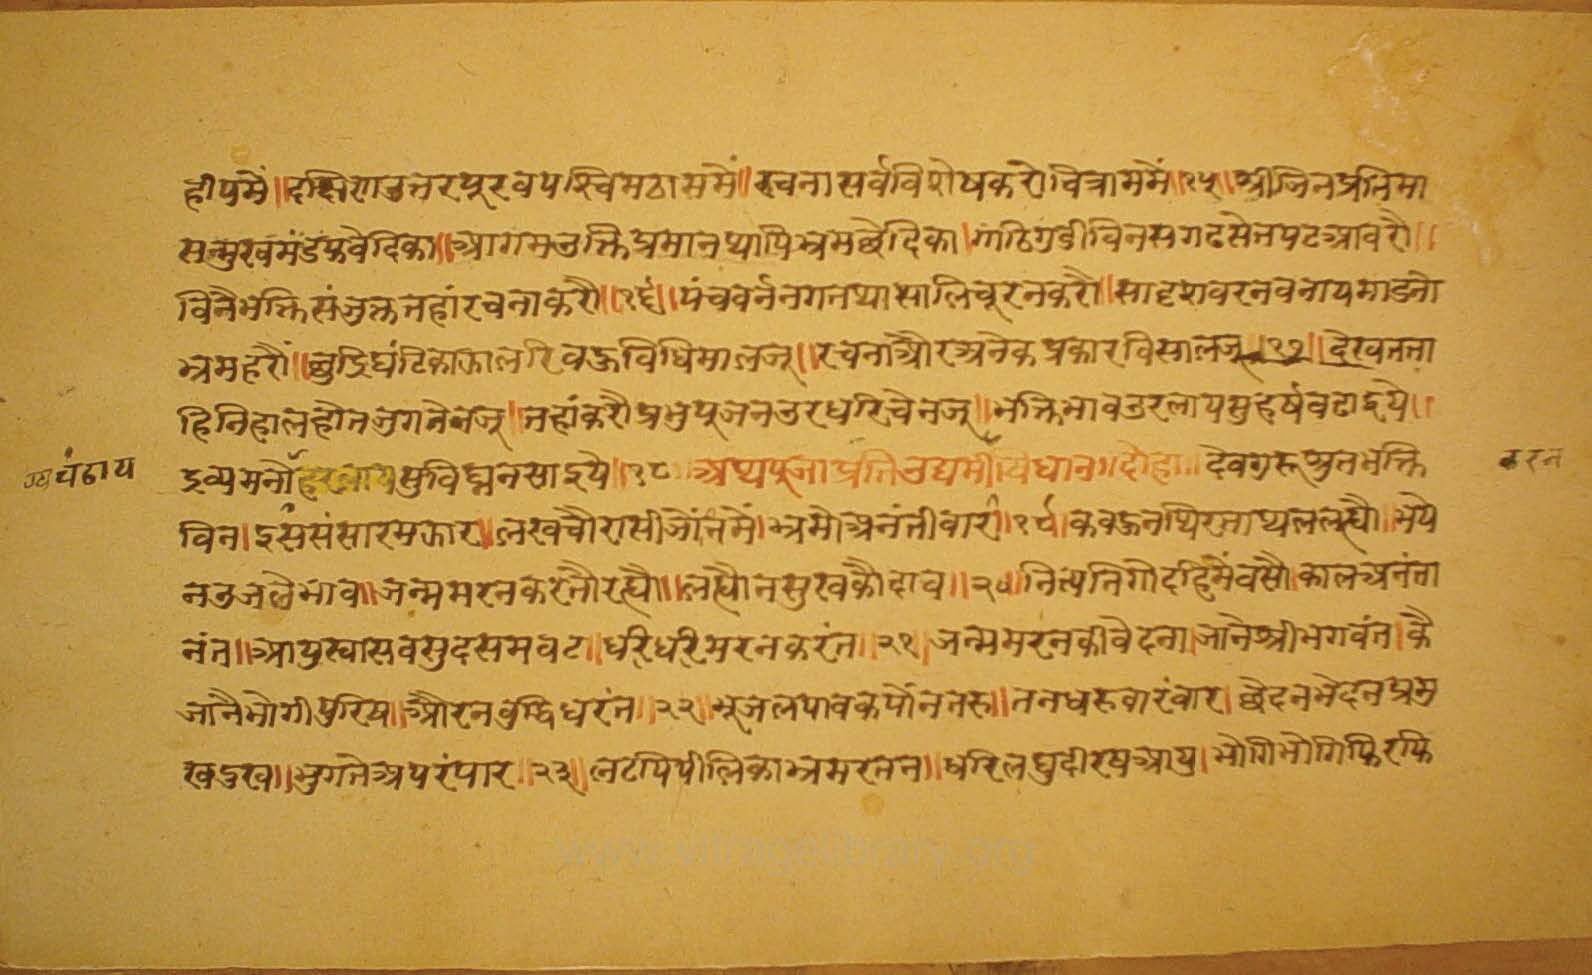 द्वीपमैं॥दक्षिणउत्तरपूरवपश्चिमठासमैं॥रचनासर्वविशेषकरोचित्राममैं॥१५॥श्रीजिनप्रतिमा
सन्मुखमंडपवेदिका॥आगमउक्तिप्रमानथापिभ्रमछेदिका।गांठिगुडीविनसगढसेतपटआवरौ॥
विनैभक्तिसंजुक्ततहांरचनाकरौ॥१६॥पंचवर्ननगतथासालिचूरनकरौ॥सादृशवरनवनायमाडनो
भ्रमहरौ॥छुद्रिघंटिकाझालरिवऊविधिमालजू॥रचनाऔरअनेकप्रकारविसालजू॥१७॥देखतता
हिनिहालहौतजुगनैनजू॥तहांकरौप्रभुपूजनउरधरिचैनजू॥भक्तिभावउरलायसुहर्षवढाइये॥
चंढाय
द्रव्यमनौहरलायसुविघ्ननसाइये॥१८॥अथपूजाप्रतिउद्यमीविधान॥दोहा॥देवगुरूश्रुतभक्ति
करन
विन।इससंसारमझार॥लखचौरासीजौंनमें।भ्रमोअनंतीवार॥१९॥कवऊनथिरताथललह्यौ॥भये
नउजलेभाव॥जन्ममरनकरतौरह्यौ॥लह्यौनसुखकौदाव॥२०॥नित्यनिगौदहिमैंवसौ।कालअनंता
नंत॥आयुस्वासवसुदसमवट॥धरिधरिमरनकरंत॥२१॥जन्ममरनकीवेदना।जानैश्रीभगवंत।कै
जानैभोगीपुरिष॥औरनवुद्धिधरंत॥२२॥भूजलपावकपौंनतरू॥तनधरूवारंवार।छेदनभेदनप्रमु
खदुख॥भुगतेअपरंपार॥२३॥लटपिपीलिकाभ्रमरतन॥धरिलघुदीरघआयु।भोगिभोगिफिरफि
www.vitragelibrary.org